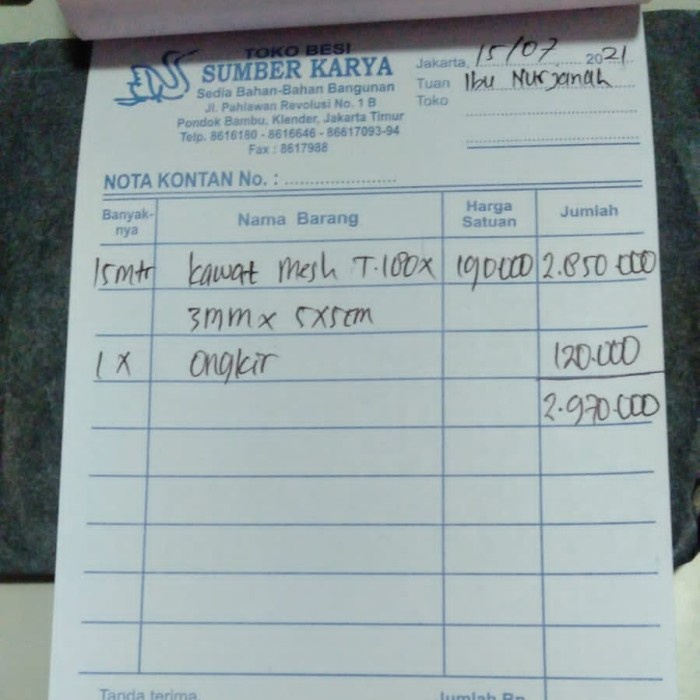 TOKO BESI
SUMBER KARYA
Sedia Bahan-Bahan Bangunan
Jl. Pahlawan Revolusi No. 1 B
Pondok Bambu, Klender, Jakarta Timur
Telp. 8616180 - 8616646 - 86617093-94
Fax : 8617988
Jakarta, 15/07 2021
Tuan Ibu Nurjanah
Toko
NOTA KONTAN No. :
Banyak-nya Nama Barang Harga Satuan Jumlah
15mtr kawat mesh T.180x 190000 2.850.000
3mm x 5x5cm
1 x ongkir 120.000
2.970.000
Tanda terima, Jumlah Rp